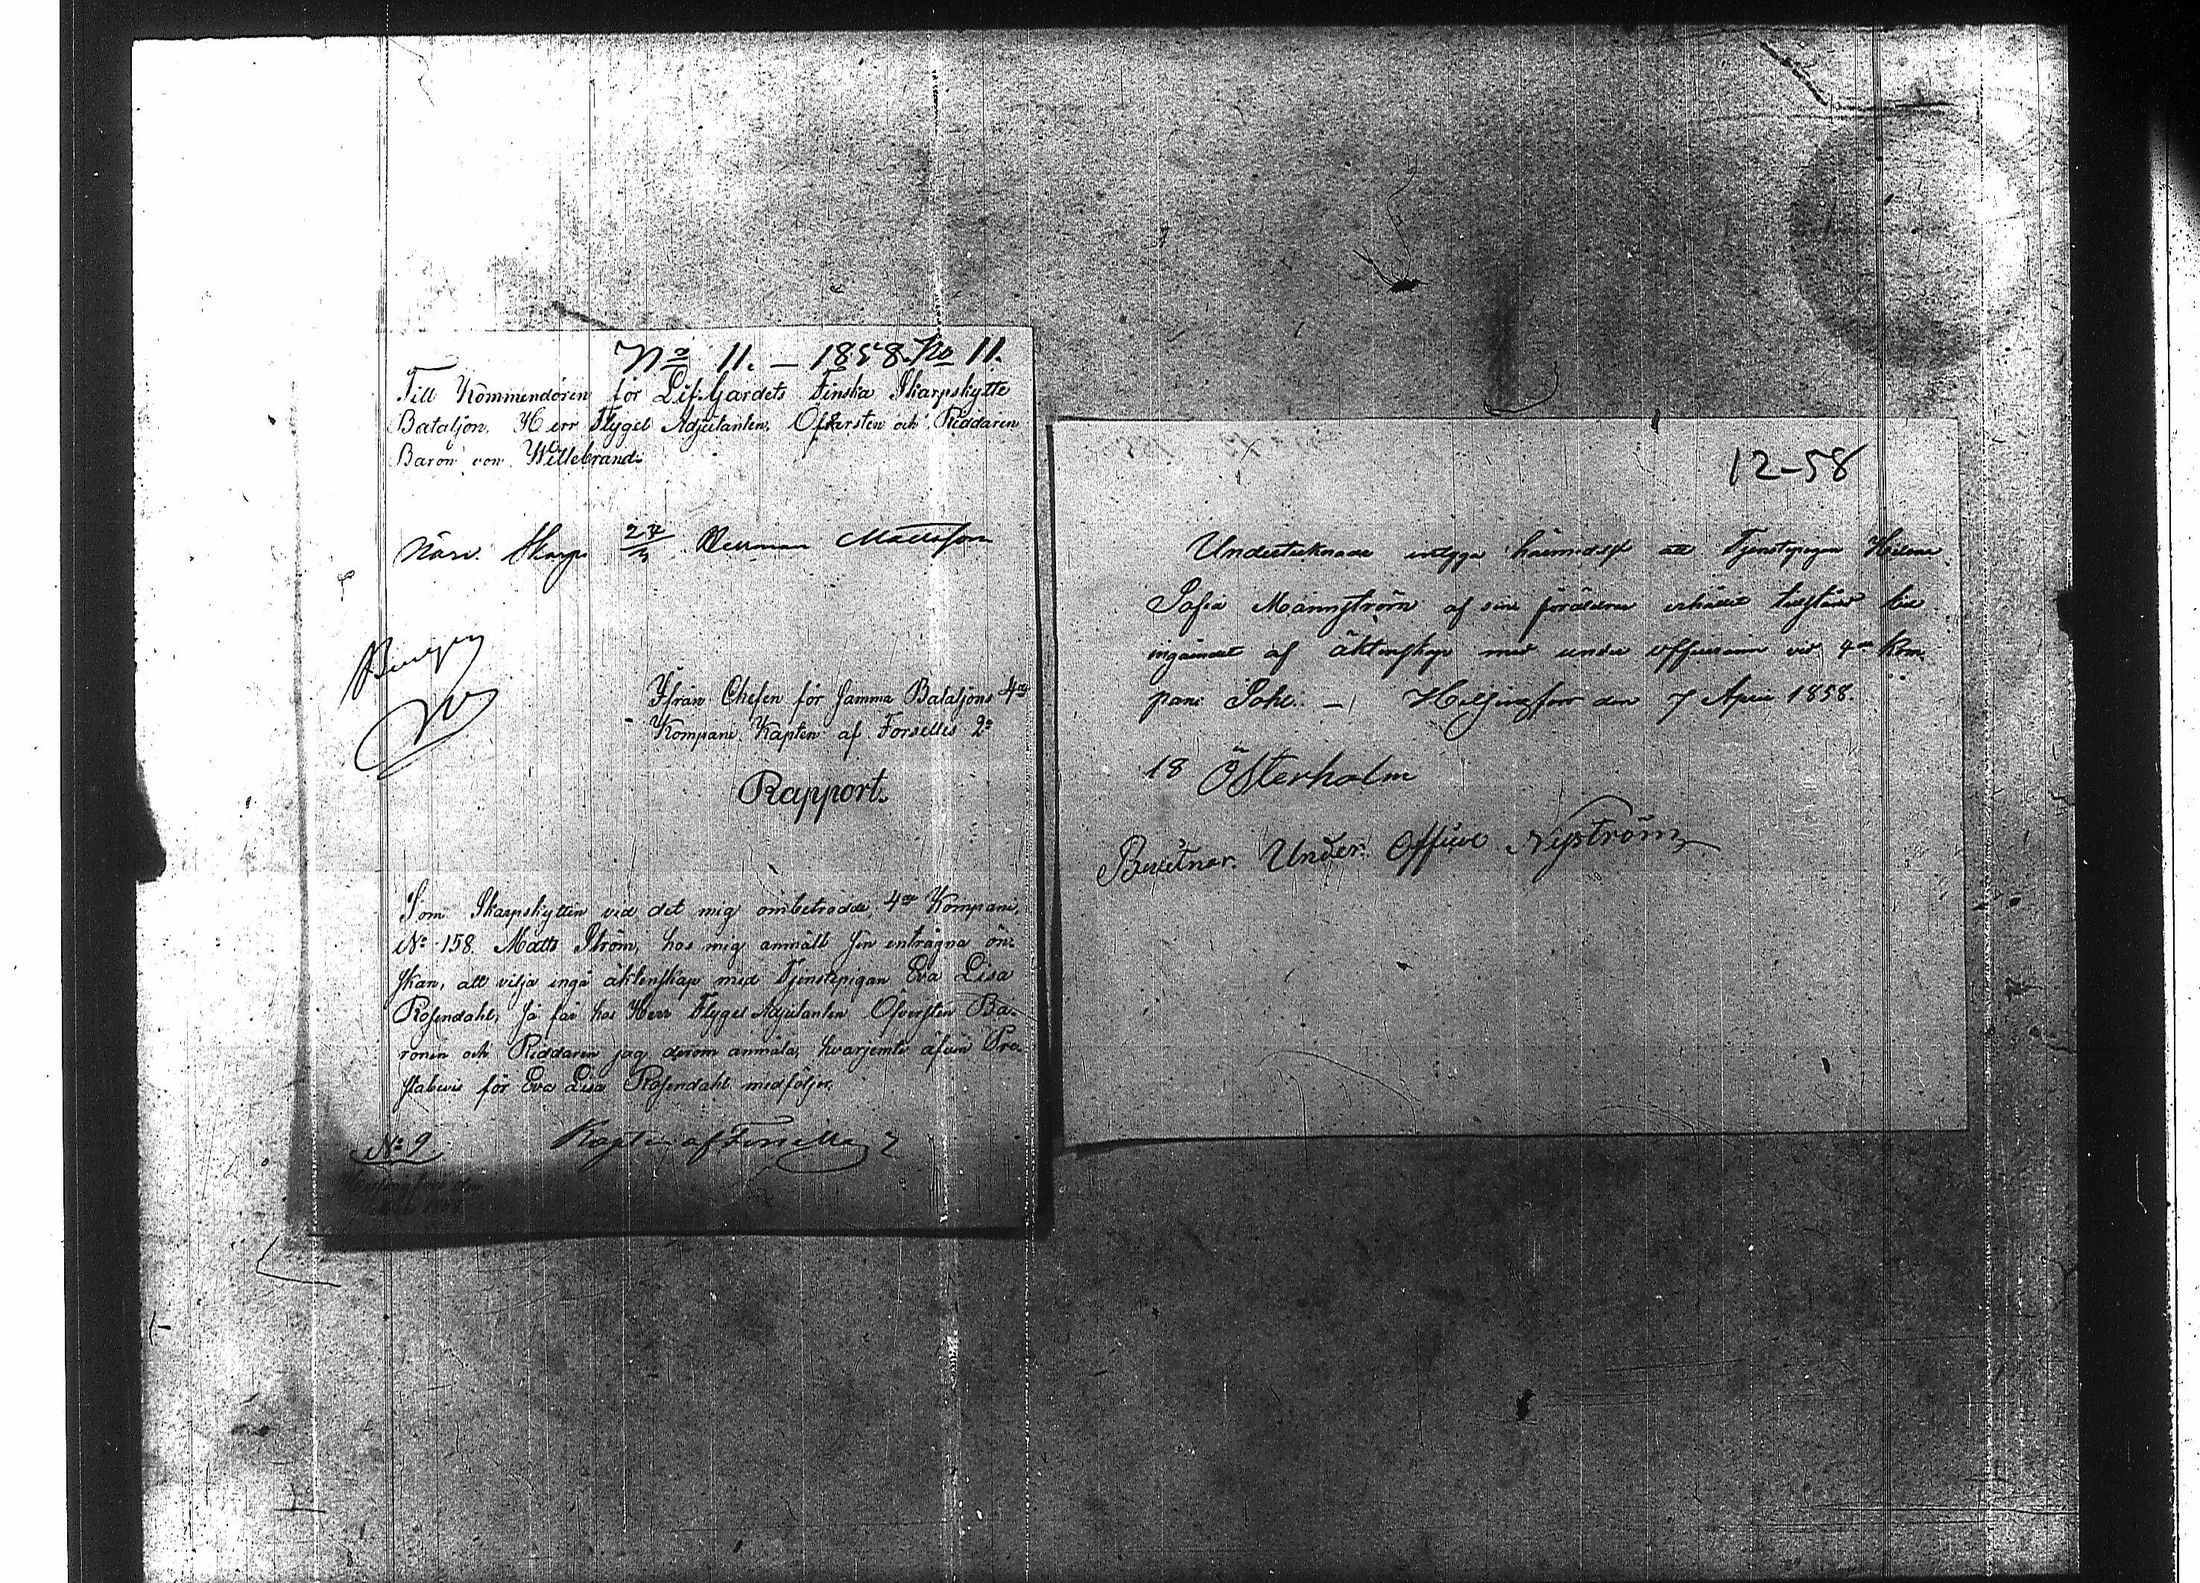 No 11. – 1858. No 11.
Till Kommendören för Lif-Gardets Finska Skarpskytte
Bataljon, Herr Flygel Adjutanten, Öfversten och Riddaren
Baron von Willebrand.
Skarps
Från Chefen för samma Bataljons 4de
Kompani, Kapten af Forselles 2a
Rapport.
Som Skarpskytten vid det mig ombetrodde 4de Kompani,
No 158. Matts Ström, hos mig anmält sin enträgna ön-
skan, att vilja ingå äktenskap med Tjenstepigan Eva Lisa
Rosendahl, så får hos Herr Flygel Adjutanten Öfversten Ba-
ronen och Riddaren jag derom anmäla, hvarjemte äfven Pre-
stabevis för Eva Lisa Rosendahl medföljer.
Kapten af Forselles 2
No 9
12–58
Undertecknade intyga härmedelst att Tjenstepigan Helena
Sofia Mannström af sina föräldrar erhållit tillstånd till
ingåendet af äktenskap med under officeren vid 4de Kom-
pani Pohl. – Helsingfors den 7 April 1858.
18 Österholm
Under Officer Nyström